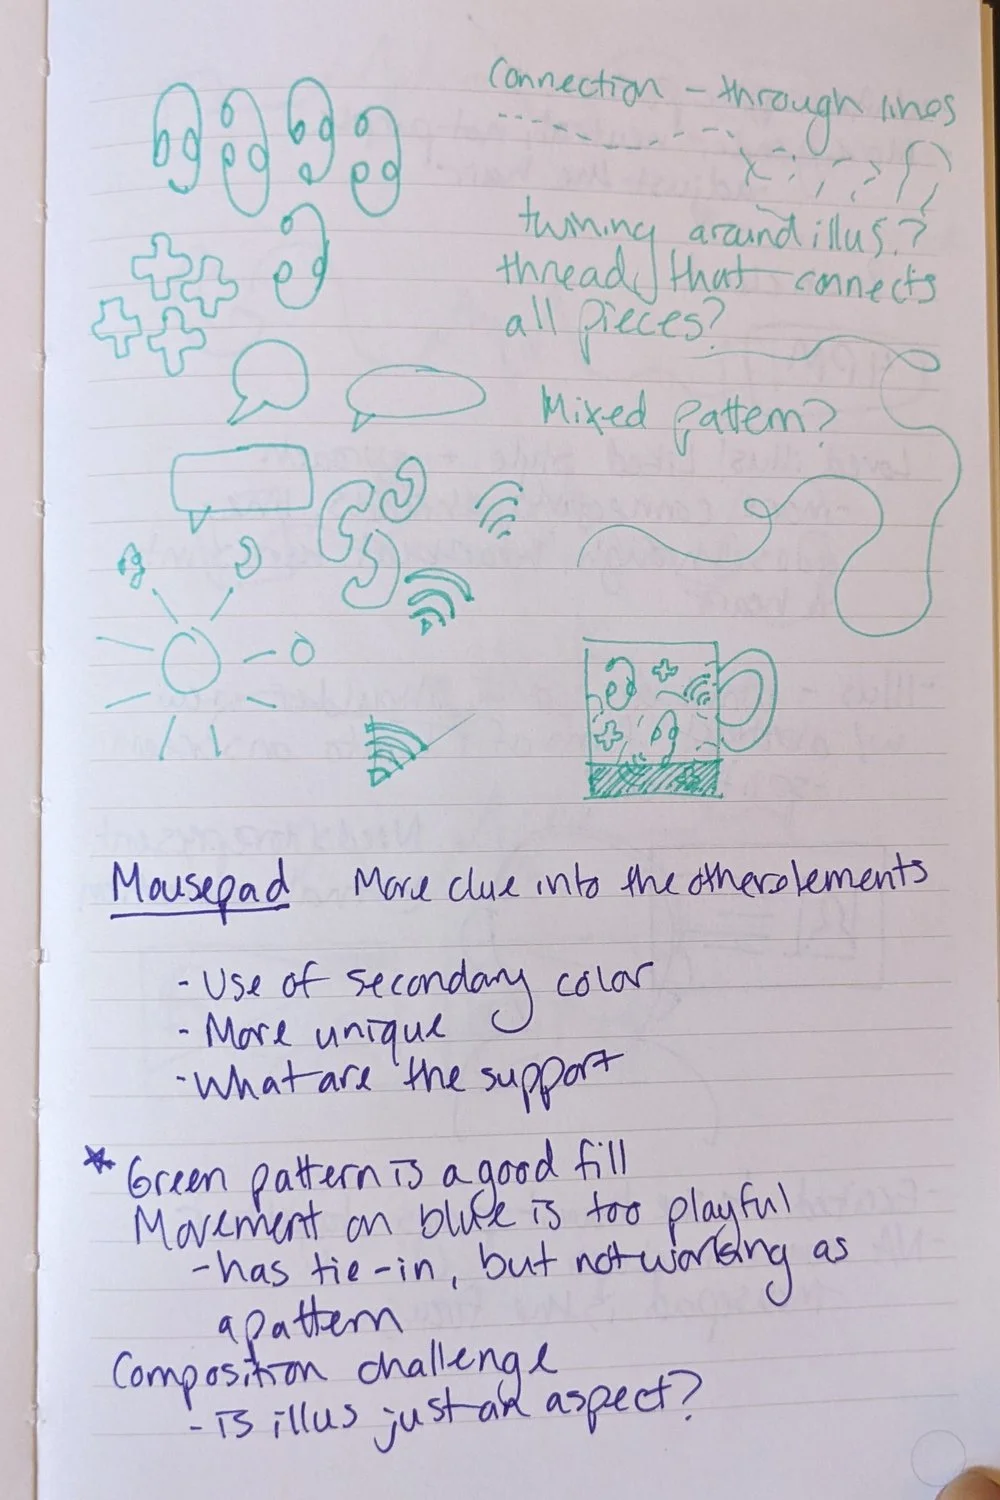 Connection - through lines
twining around illus?
thread that connects
all pieces?
Mixed pattern?
Mousepad More clue into the other elements
- Use of secondary color
- More unique
- What are the support
* Green pattern is a good fill
Movement on blue is too playful
- has tie-in, but not working as
a pattern
Composition challenge
- is illus just an aspect?